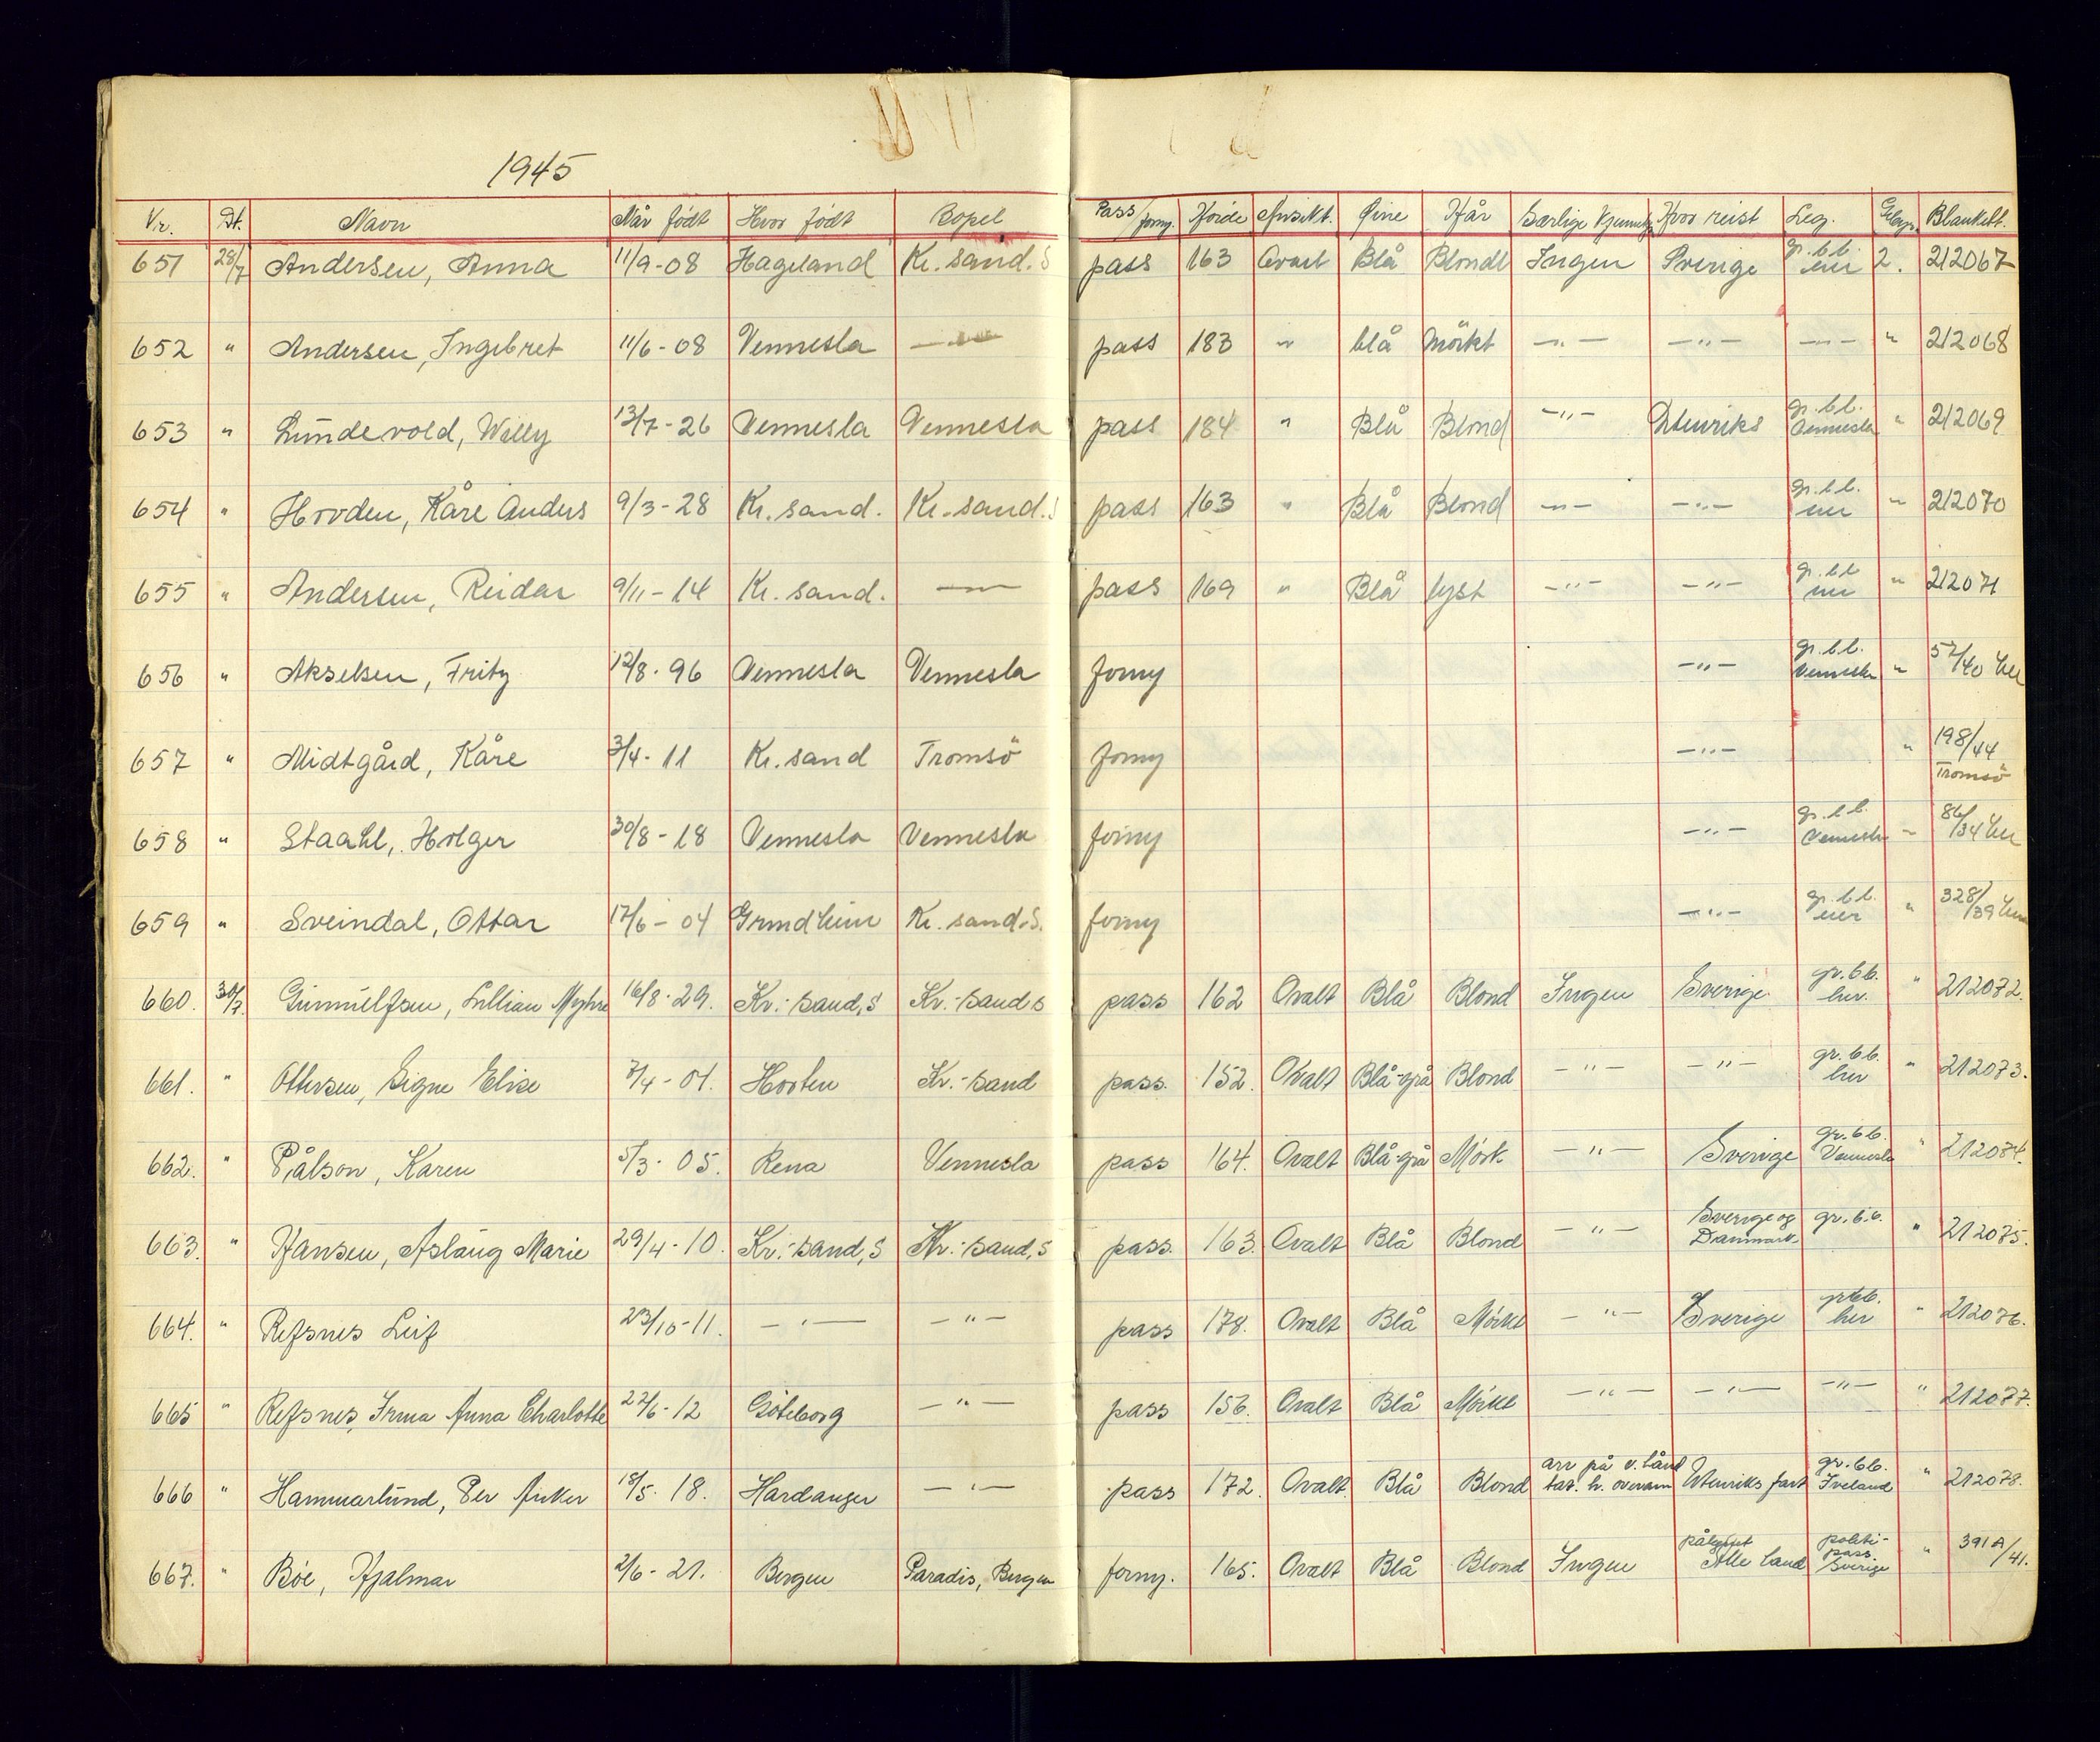 1945
Nr. Dt. Navn Når født Hvor födt Bopel Pass/forny. Høide Ansikt. Øine Hår Særlige Kjennetegn Hvor reist Leg. Gebyr. Blankett.
651 28/7 Andersen, Anna 11/9-08 Hageland Kr.sand.S pass 163 Ovalt Blå Blondt Ingen Sverige gr.b.b. her 2. 212067
652 " Andersen, Ingebret 11/6-08 Vennesla —"— pass 183 " blå Mörkt —"— —"— —"— " 212068
653 " Lundevold, Willy 13/7-26 Vennesla Vennesla pass 184 " Blå Blond —"— Utenriks gr.b.b. Vennesla " 212069
654 " Hovden, Kåre Anders 9/3-28 Kr.sand. Kr.sand.S pass 163 " Blå Blond —"— —"— gr.b.b. her " 212070
655 " Andersen, Reidar 9/11-14 Kr.sand. —"— pass 169 " Blå lyst —"— —"— gr.b.b her " 212071
656 " Akselsen, Fritz 12/8-96 Vennesla Vennesla forny —"— gr.b.b. Vennesla " 57/40 her
657 " Midtgård, Kåre 3/4-11 Kr.sand Tromsö forny —"— " 198/44 Tromsö
658 " Staahl, Holger 30/8-18 Vennesla Vennesla forny —"— gr.b.b. Vennesla " 86/34 her
659 " Sveindal, Ottar 17/6-04 Grindheim Kr.sand.S. forny —"— gr.b.b. her " 328/39 her
660. 30/7. Gunnulfsen, Lillian Myhre 16/8-29. Kr.-sand,S Kr.-sand S pass 162 Ovalt Blå Blond Ingen Sverige gr.bb. her. " 212072.
661. " Ottersen, Signe Elise 7/4-01. Horten Kr.-sand pass. 152. Ovalt Blå-grå Blond —"— —"— gr.bb. her " 212073.
662. " Pålson, Karen 5/3-05. Rena Vennesla pass 164. Ovalt Blå-grå Mörk —"— Sverige gr.bb. Vennesla " 212074.
663. " Hansen, Aslaug Marie 29/4-10. Kr.-sand,S Kr.-sand,S pass. 163. Ovalt Blå Blond —"— Sverige og Danmark gr.b.b. " 212075.
664. " Refsnes Leif 23/10-11. —"— —"— pass 178. Ovalt Blå Mörkt —"— Sverige gr.bb. her " 212076.
665 " Refsnes, Irma Anna Charlotte 27/6-12 Göteborg —"— pass 156. Ovalt Blå Mörkt —"— —"— —"— " 212077.
666 " Hammarlund, Per Anker 18/5-18. Hardanger —"— pass 172. Ovalt. Blå Blond arr på v. hånd tat. h. overarm Utenriks fart gr.bb. Iveland " 212078.
667. " Böe, Hjalmar 2/6-21. Bergen Paradis, Bergen forny. 165. Ovalt Blå Blond Ingen Alle land politi-pass. Sverige " 391A/41.